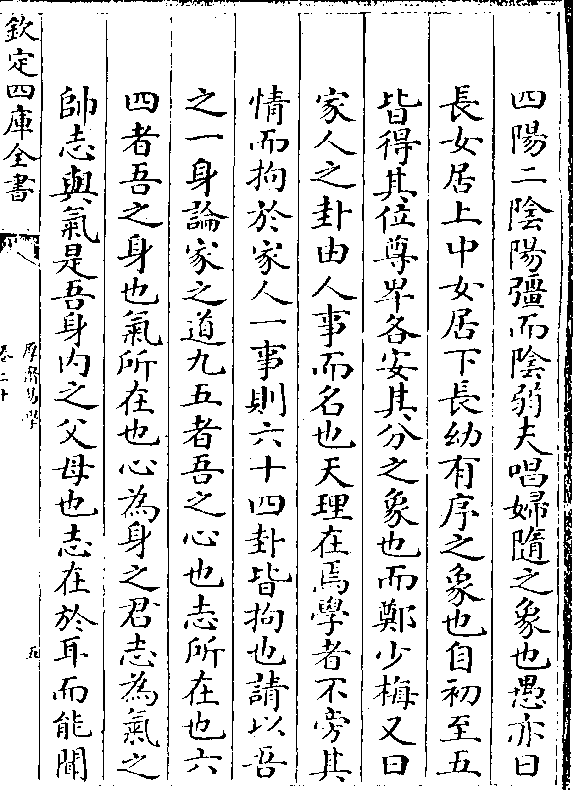 四陽二陰陽彊而陰弱夫唱婦隨之象也愚亦曰
長女居上中女居下長幼有序之象也自初至五
皆得其位尊卑各安其分之象也而鄭少梅又曰
家人之卦由人事而名也天理在焉學者不旁其
情而拘於家人一事則六十四卦皆拘也請以吾
之一身論家之道九五者吾之心也志所在也六
四者吾之身也氣所在也心為身之君志為氣之
帥志與氣是吾身内之父母也志在於耳而能聞
欽定四庫全書
厚齋易學
卷二十
五